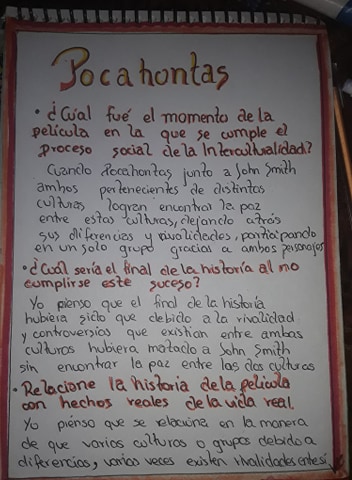 Pocahontas
• ¿Cúal fué el momento de la
película en la que se cumple el
proceso social de la Interculturalidad?
Cuando Pocahontas junto a John Smith
ambos pertenecientes de distintas
culturas, logran encontrar la paz
entre estas culturas, dejando atrás
sus diferencias y rivalidades, participando
en un solo grupo gracias a ambos personajes
• ¿Cuál sería el final de la historia al no
cumplirse este suceso?
Yo pienso que el final de la historia
hubiera sido que debido a la rivalidad
y controversias que existian entre ambas
culturas hubiera matado a John Smith
sin encontrar la paz entre las dos culturas
• Relacione la historia de la película
con hechos reales de la vida real.
Yo pienso que se relaciona en la manera
de que varias culturas o grupos debido a
diferencias, varias veces existen rivalidades entre si